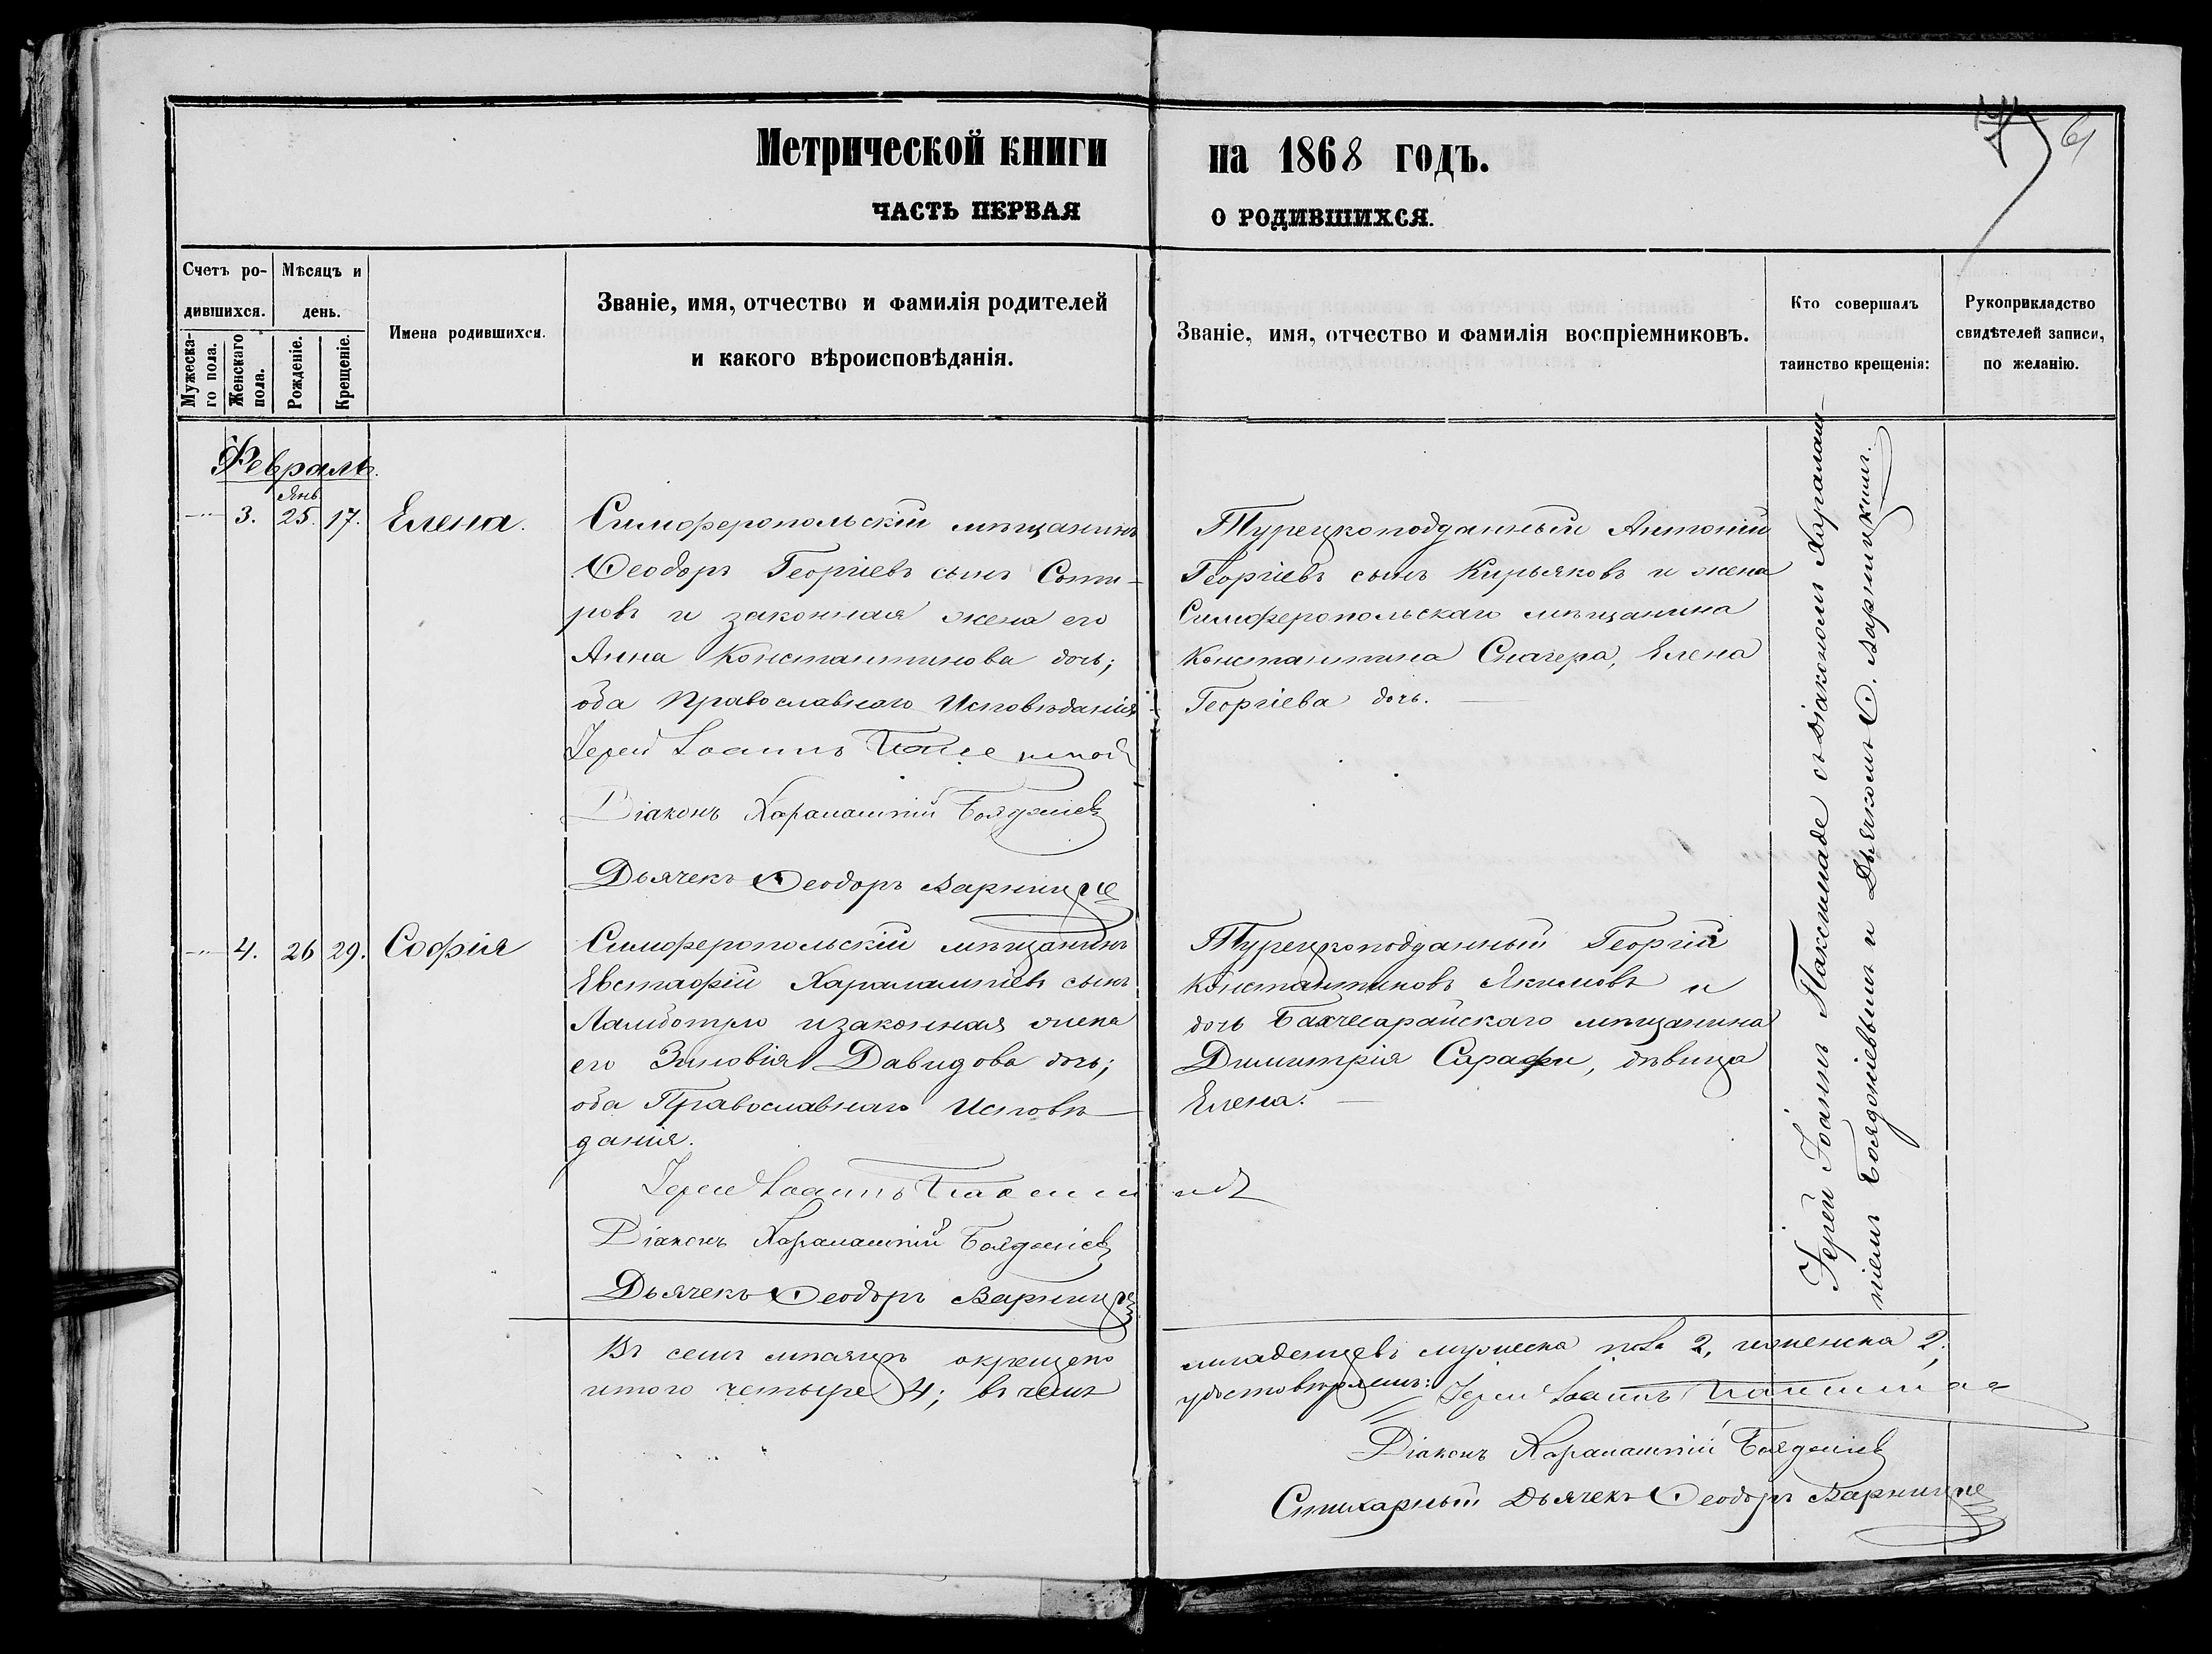 Метрической книги на 1868 годъ.
ЧАСТЬ ПЕРВАЯ О РОДИВШИХСЯ.
7 6
Счетъ ро-
дившихся.
Мужеска-
го пола.
Женскаго
пола.
Мѣсяцъ и
день.
Рожденіе.
Крещеніе.
Имена родившихся.
Званіе, имя, отчество и фамилія родителей
и какого вѣроисповѣданія.
Званіе, имя, отчество и фамилія воспріемниковъ.
Кто совершалъ
таинство крещенія:
Рукоприкладство
свидѣтелей записи,
по желанію.
Февраль.
Янв.
— 3. 25. 17. Елена.
Симферопольскій мѣщанинъ
Ѳеодоръ Георгіевъ сынъ Соти-
ровъ и законная жена его
Анна Константинова дочь;
оба Православнаго Исповѣданія
Іерей Іоаннъ
Діаконъ Харалампій Бояджіевъ
Дьячекъ Ѳеодоръ Варници
Турецкоподданный Антоній
Георгіевъ сынъ Кирьяковъ и жена
Симферопольскаго мѣщанина
Константина Спачера, Елена
Георгіева дочь. —
— 4. 26 29. Софія
Симферопольскій мѣщанинъ
Евстафій Харалампіевъ сынъ
Ламботро и законная жена
его Зиновія Давидова дочь;
оба Православнаго Исповѣ—
данія.
Іерей Іоаннъ
Діаконъ Харалампій Бояджіевъ
Дьячекъ Ѳеодоръ Варници
Турецкоподданный Георгій
Константиновъ Якимовъ и
дочь Бахчесарайскаго мѣщанина
Димитрія Сарафи, дѣвица
Елена. —
Іерей Іоаннъ Паксимаде съ діакономъ Харалам-
піемъ Бояджіевымъ и Дьячкомъ Ѳ. Варницкимъ.
Въ семъ мѣсяцѣ окрещено
итого четыре 4; въ чемъ
младенцевъ мужеска пола 2, и женска 2;
удостовѣряемъ: Іерей Іоаннъ
Діаконъ Харалампій Бояджіевъ
Стихарный Дьячекъ Ѳеодоръ Варници